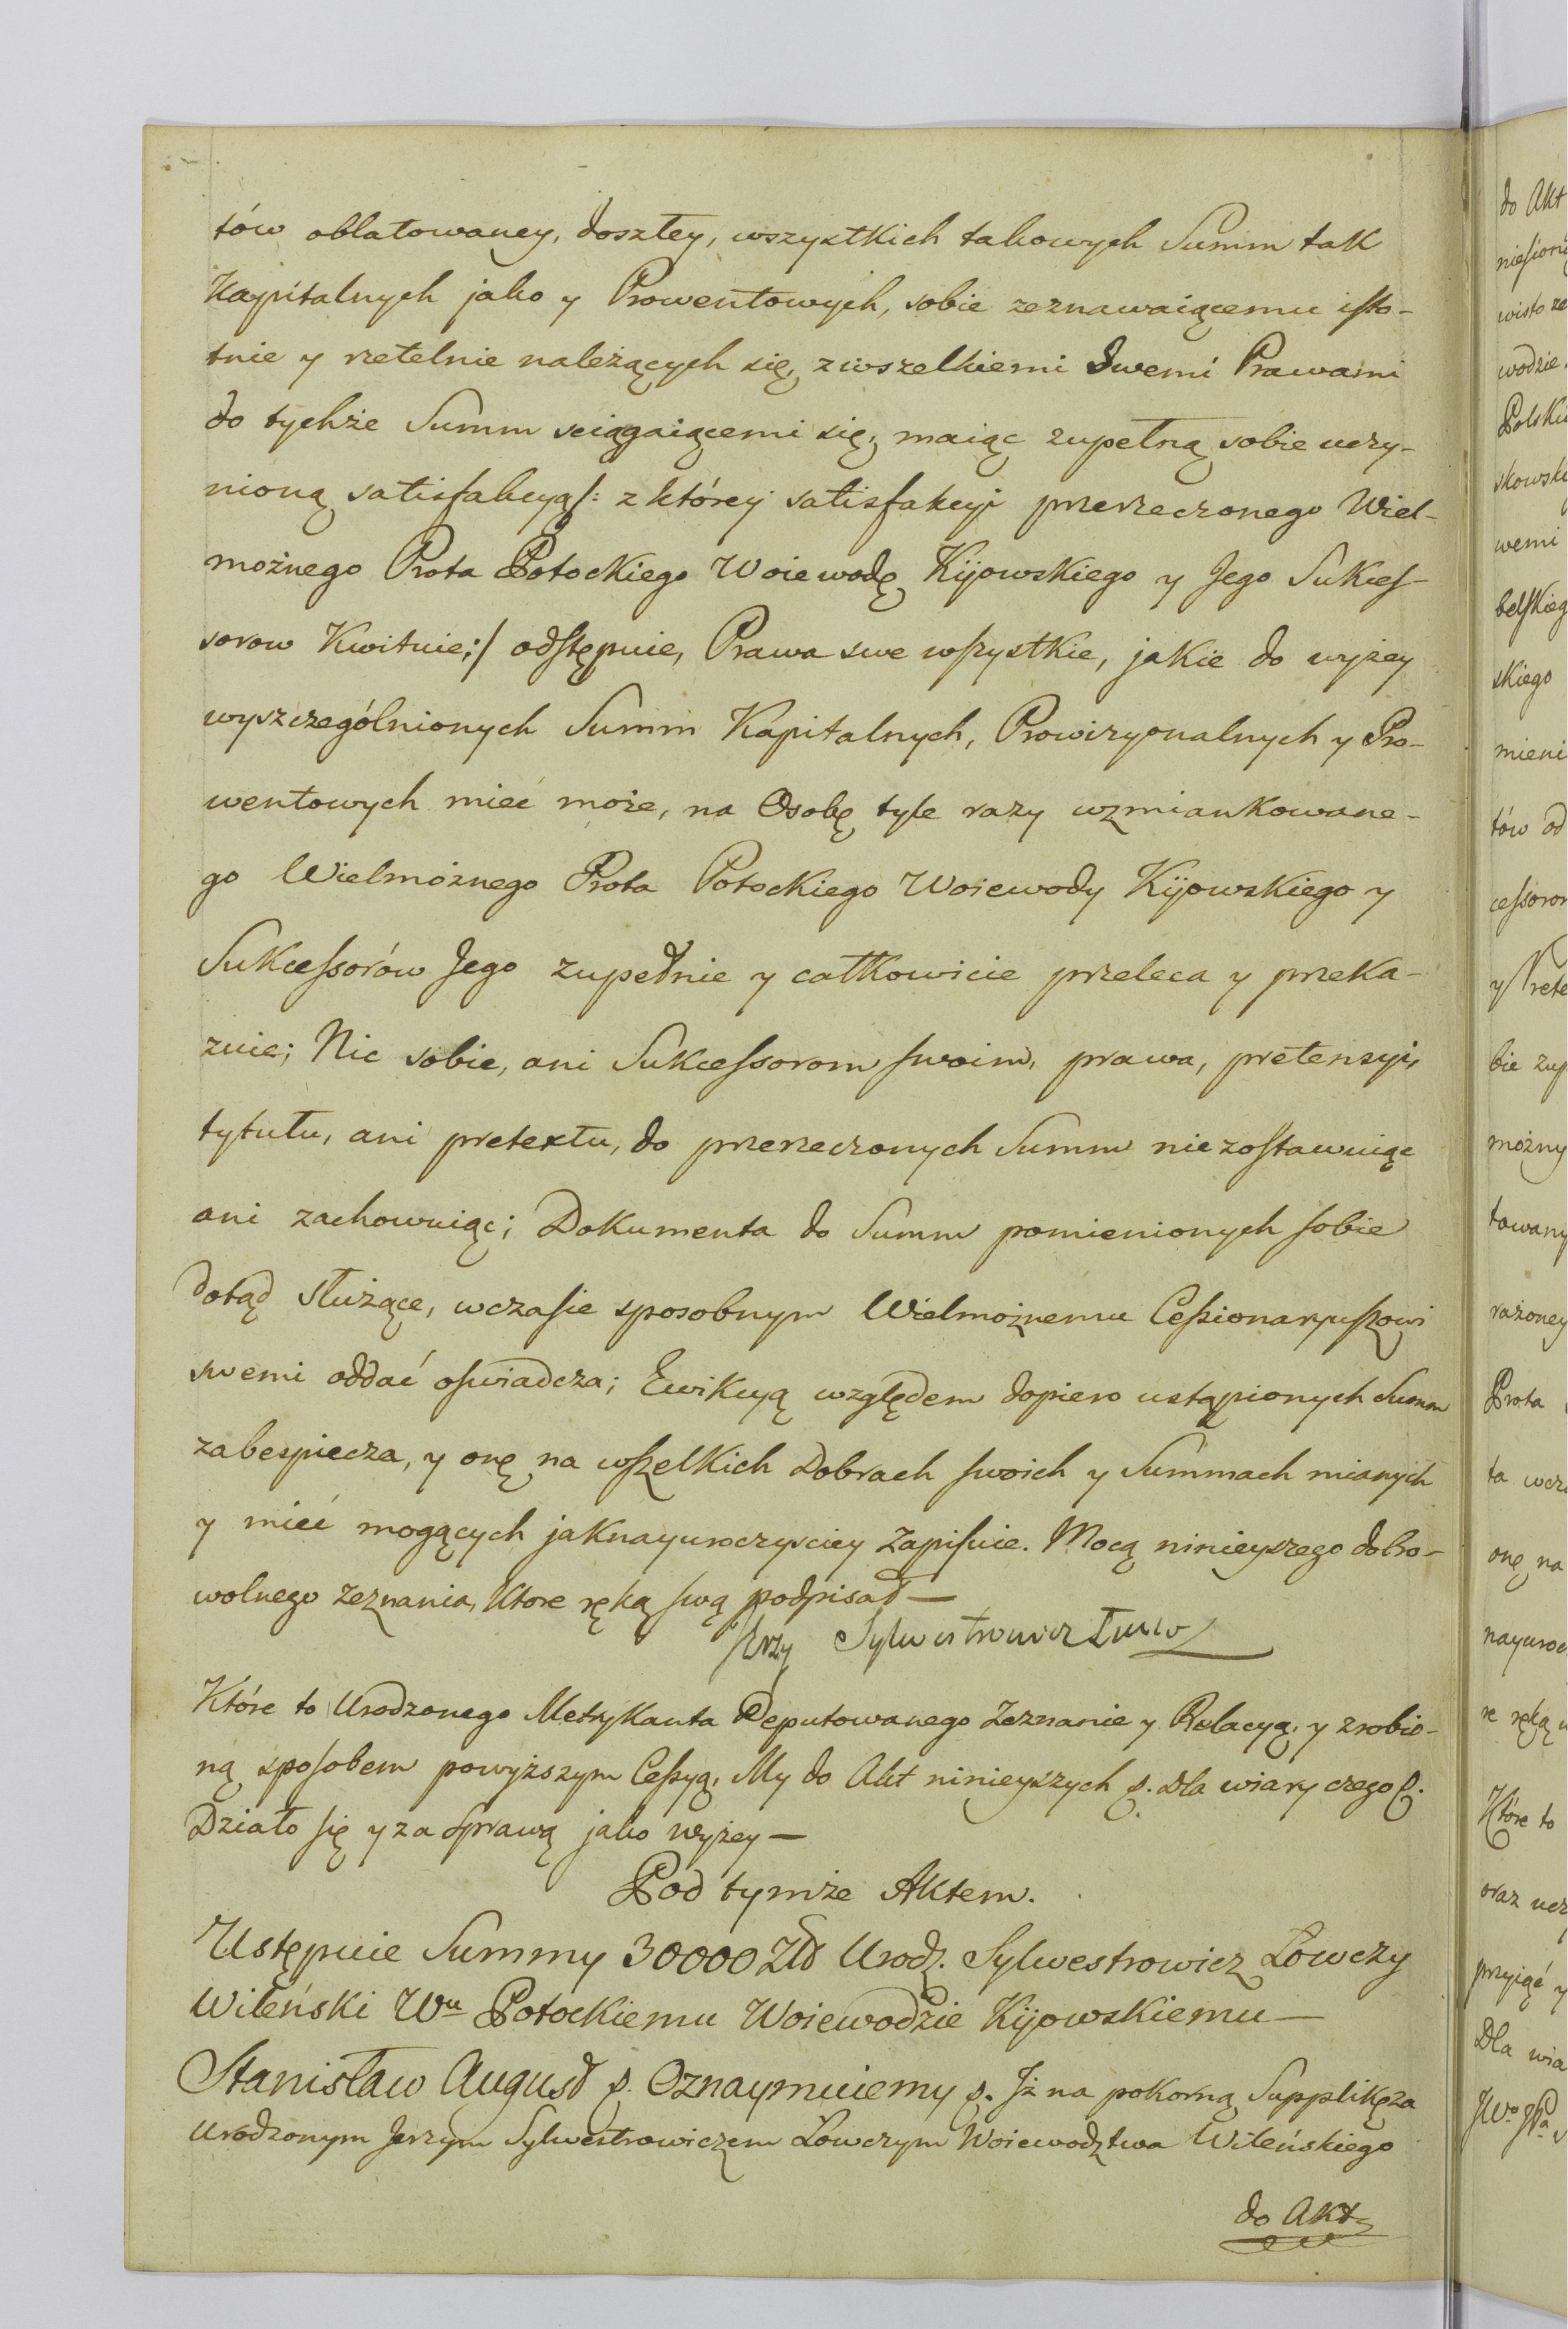 tów oblatowaney, doszłey, wszystkich takowych Summ tak
Kapitalnych jako y Prowentowych, sobie zeznawaiącemu isto-
tnie y rzetelnie należących się, z wszelkiemi Swemi Prawami
do tychże Summ sciągaiącemi się, maiąc zupełną sobie uczy-
nioną satisfakcyą /: z którey satisfakcyi przerzeczonego Wiel-
możnego Prota Potockiego Woiewodę Kijowskiego y Jego Sukces-
sorow Kwituie :/ odstępuie, Prawa swe wszystkie, jakie do wyżey
wyszczególnionych Summ Kapitalnych, Prowizyonalnych y Pro-
wentowych mieć może, na Osobę tyle razy wzmiankowane-
go Wielmożnego Prota Potockiego Woiewody Kijowskiego y
Sukcessorów Jego zupełnie y całkowicie przeleca y przeka-
zuie; Nic sobie, ani Sukcessorom swoim, prawa, pretensyi,
tytułu, ani pretextu, do przerzeczonych Summ nie zostawuiąc
ani zachowuiąc; Dokumenta do Summ pomienionych sobie
dotąd służące, w czasie sposobnym Wielmożnemu Cessionaryuszowi
swemi oddać oswiadcza; Ewikcyą względem dopiero ustąpionych Summ
zabespiecza, y onę na wszelkich Dobrach swoich y Summach mianych
y mieć mogących jaknayuroczysciey zapisuie. Mocą ninieyszego dobro-
wolnego zeznania, Ktore ręką swą podpisał —
Jerzy Sylwestrowicz Łww
Które to Urodzonego Metrykanta Deputowanego Zeznanie y Relacyą, y zrobio-
ną sposobem powyższym Cessyą, My do Akt ninieyszych p. Dla wiary czego p.
Działo się y za Sprawą jako wyżey —
Pod tymże Aktem.
Ustępuie Summy 30000 Zlł Urodz. Sylwestrowicz Łowczy
Wileński Wu Potockiemu Woiewodzie Kijowskiemu —
Stanisław August p. Oznaymuiemy p. Iż na pokorną Supplikę za
Urodzonym Jerzym Sylwestrowiczem Łowczym Woiewodztwa Wileńskiego
do Akt
do Akt
niesion
wisto ze
wodzie
Polski
skowski
wemi
belskieg
skiego
mieni
tów od
cessoro
y Prete
bie zup
możny
towany
rażoney
Prota
ta wcza
onę na
nayuroc
re ręką
Które to
oraz ucz
przyiąć y
Dla wia